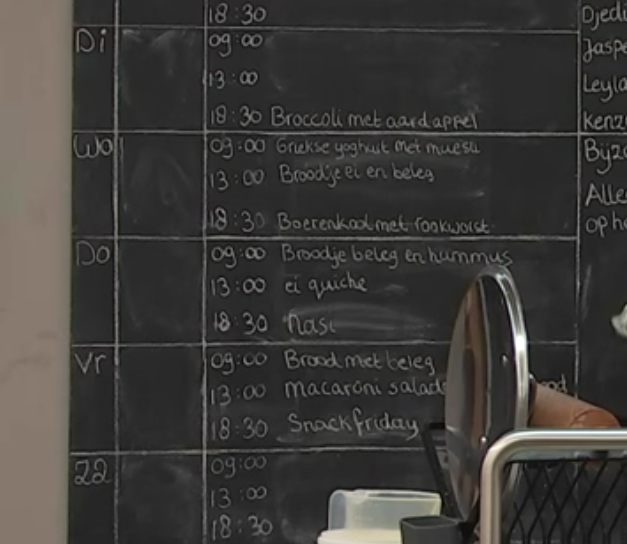 18:30
Di 09:00
13:00
18:30 Broccoli met aardappel
Wo 09:00 Griekse yoghurt met muesli
13:00 Broodje ei en beleg
18:30 Boerenkool met rookworst
Do 09:00 Broodje beleg en hummus
13:00 ei quiche
18:30 Nasi
Vr 09:00 Brood met beleg
13:00 macaroni salade
18:30 Snackfriday
Za 09:00
13:00
18:30
Djedi
Jaspe
Leyla
kenz
Bijzo
Alle
op h